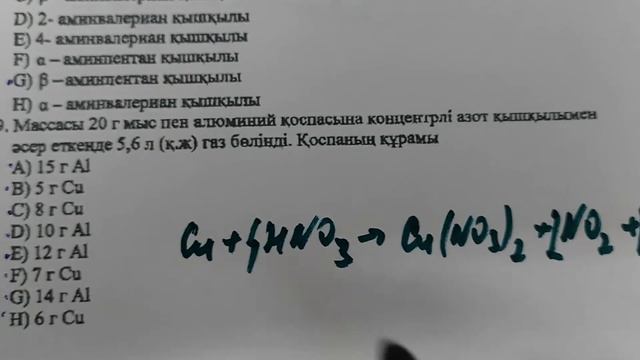 D) 2- аминвалериан қышқылы
E) 4- аминвалериан қышқылы
F) α – аминпентан қышқылы
G) β – аминпентан қышқылы
H) α – аминвалериан қышқылы
9. Массасы 20 г мыс пен алюминий қоспасына концентрлі азот қышқылымен
әсер еткенде 5,6 л (қ.ж) газ бөлінді. Қоспаның құрамы
A) 15 г Al
B) 5 г Cu
C) 8 г Cu
D) 10 г Al
E) 12 г Al
F) 7 г Cu
G) 14 г Al
H) 6 г Cu
Cu + 4HNO3 → Cu(NO3)2 + 2NO2 +